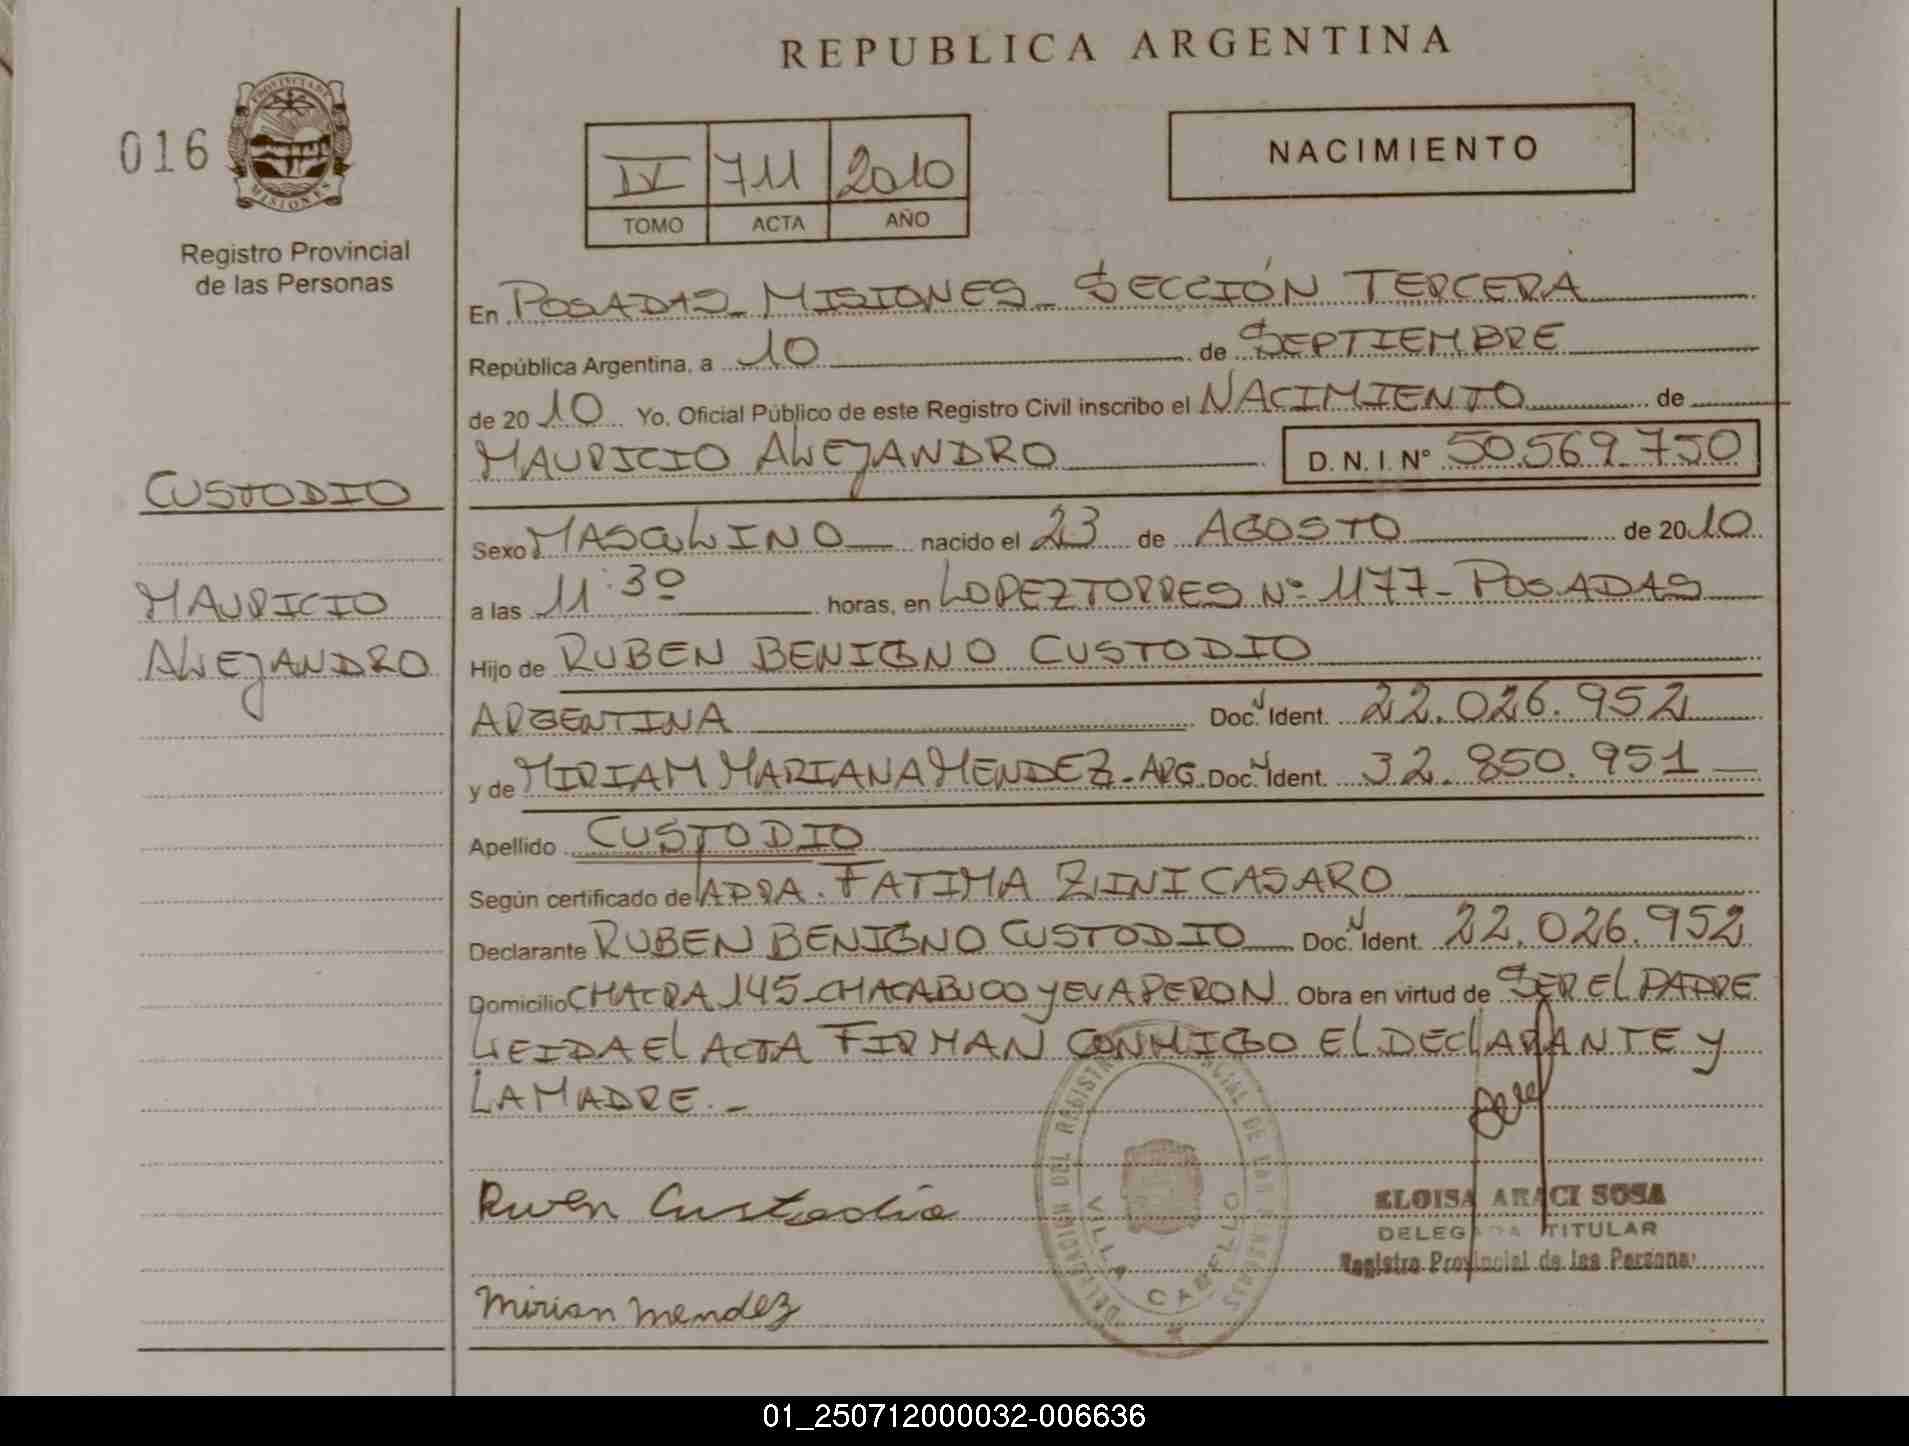 REPUBLICA ARGENTINA
016
PROVINCIA DE
MISIONES
Registro Provincial
de las Personas
IV 711 2010
TOMO ACTA AÑO
NACIMIENTO
En POSADAS_ MISIONES_ SECCIÓN TERCERA
República Argentina, a 10 de SEPTIEMBRE
de 2010 Yo, Oficial Público de este Registro Civil inscribo el NACIMIENTO de
MAURICIO ALEJANDRO D. N. I. Nº 50.569.750
CUSTODIO
MAURICIO
ALEJANDRO
Sexo MASCULINO nacido el 23 de AGOSTO de 2010
a las 11:30 horas, en LOPEZ TORRES Nº 1177- POSADAS
Hijo de RUBEN BENIGNO CUSTODIO
ARGENTINA Doc. N Ident. 22.026.952
y de MIRIAM MARIANA MENDEZ- ARG. Doc. N Ident. 32.850.951
Apellido CUSTODIO
Según certificado de DRA. FATIMA ZINI CASARO
Declarante RUBEN BENIGNO CUSTODIO Doc. N Ident. 22.026.952
Domicilio CHACRA 145-CHACABUCO Y EVA PERON Obra en virtud de SER EL PADRE
LEIDA EL ACTA FIRMAN CONMIGO EL DECLARANTE Y
LA MADRE.-
Ruben Custodio
Mirian Mendez
DELEGACION DEL REGISTRO PROVINCIAL DE LAS PERSONAS
VILLA CABELLO
ELOISA ARACI SOSA
DELEGADA TITULAR
Registro Provincial de las Personas
01_250712000032-006636